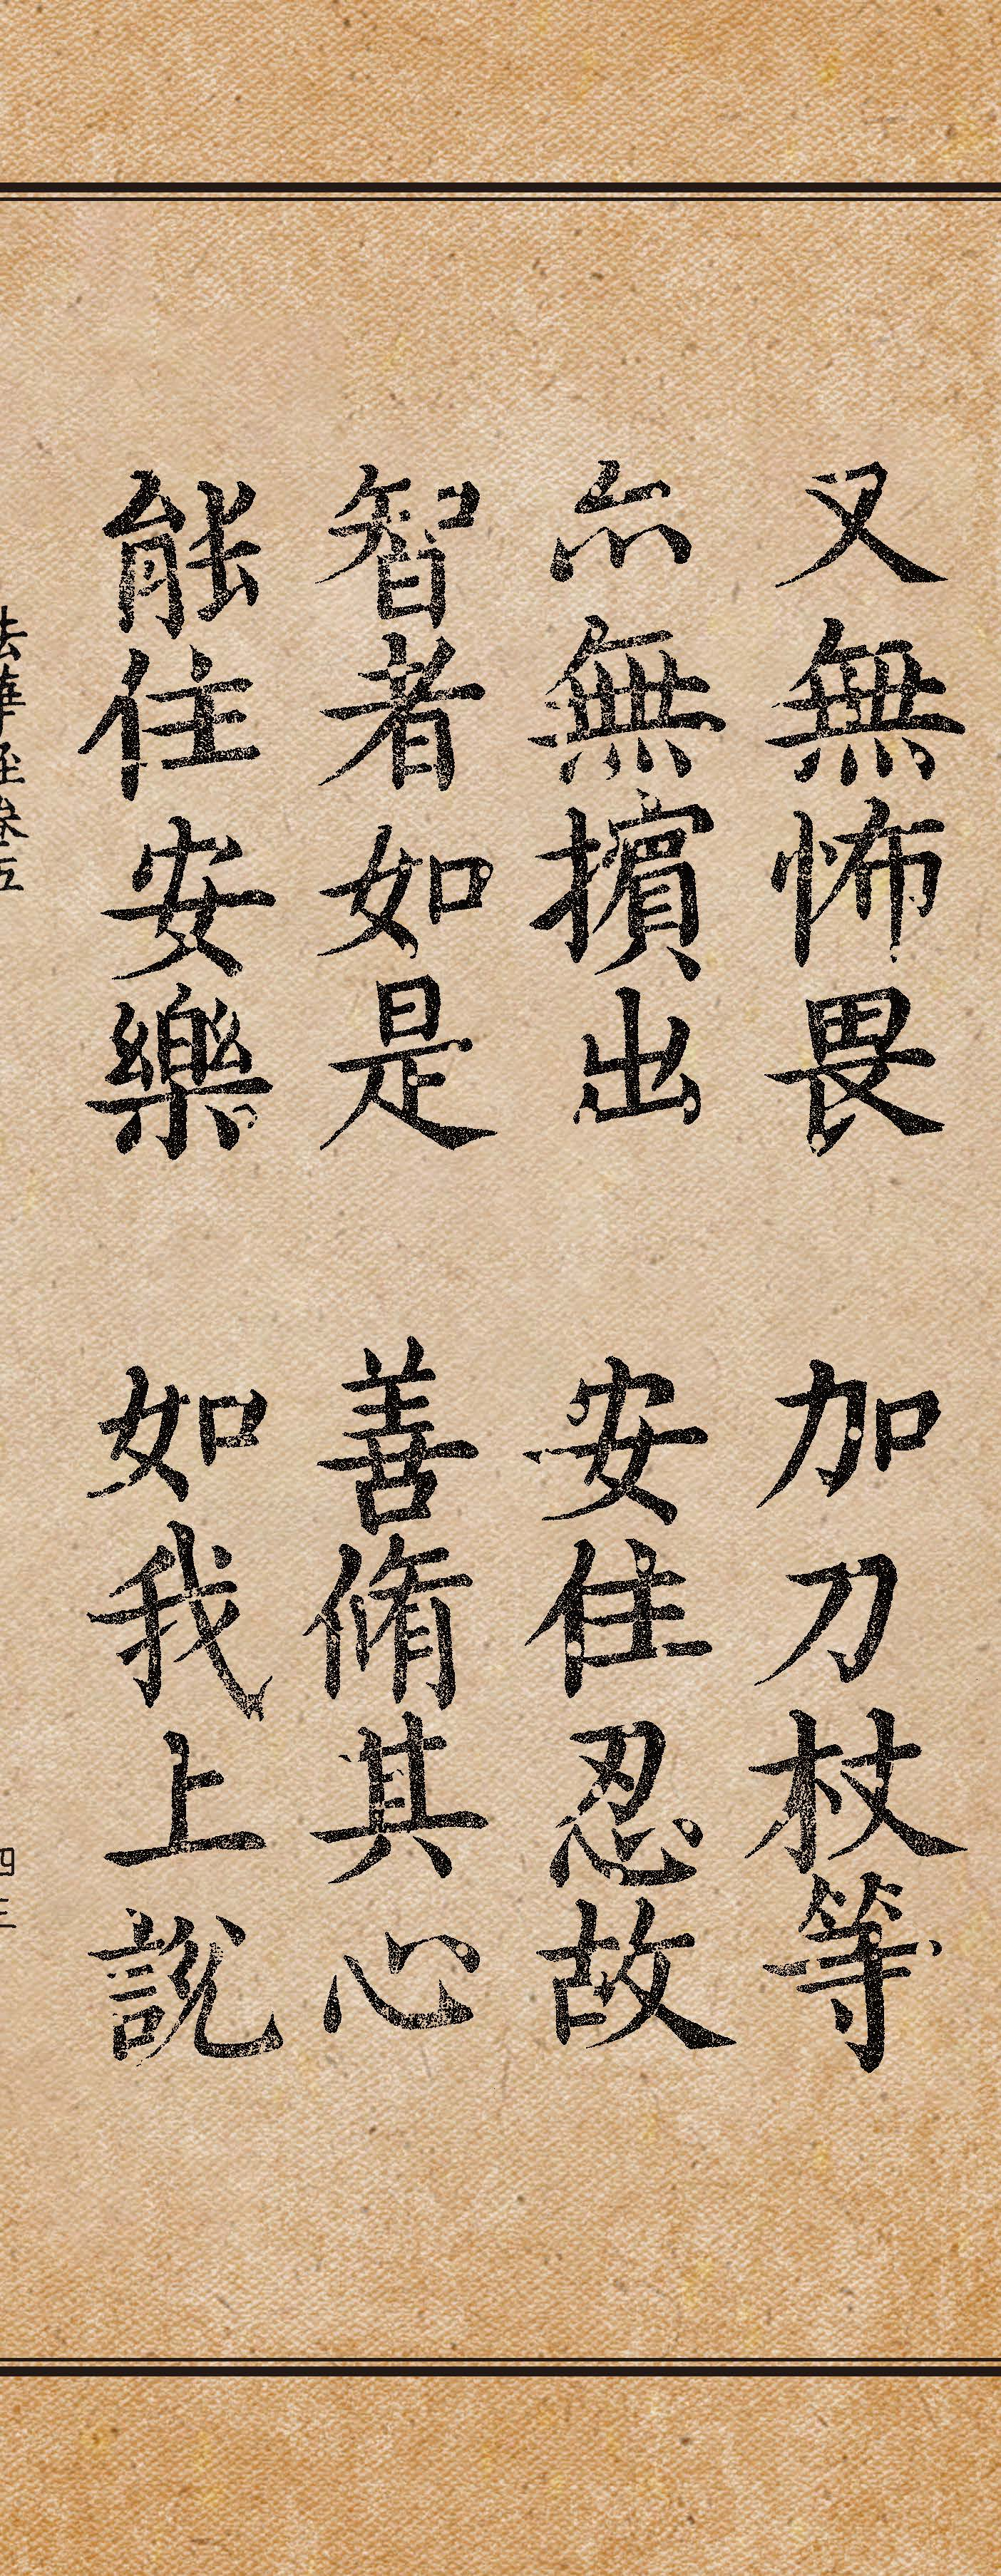 又無怖畏　加刀杖等
亦無擯出　安住忍故
智者如是　善脩其心
能住安樂　如我上說
法華經卷五　四三